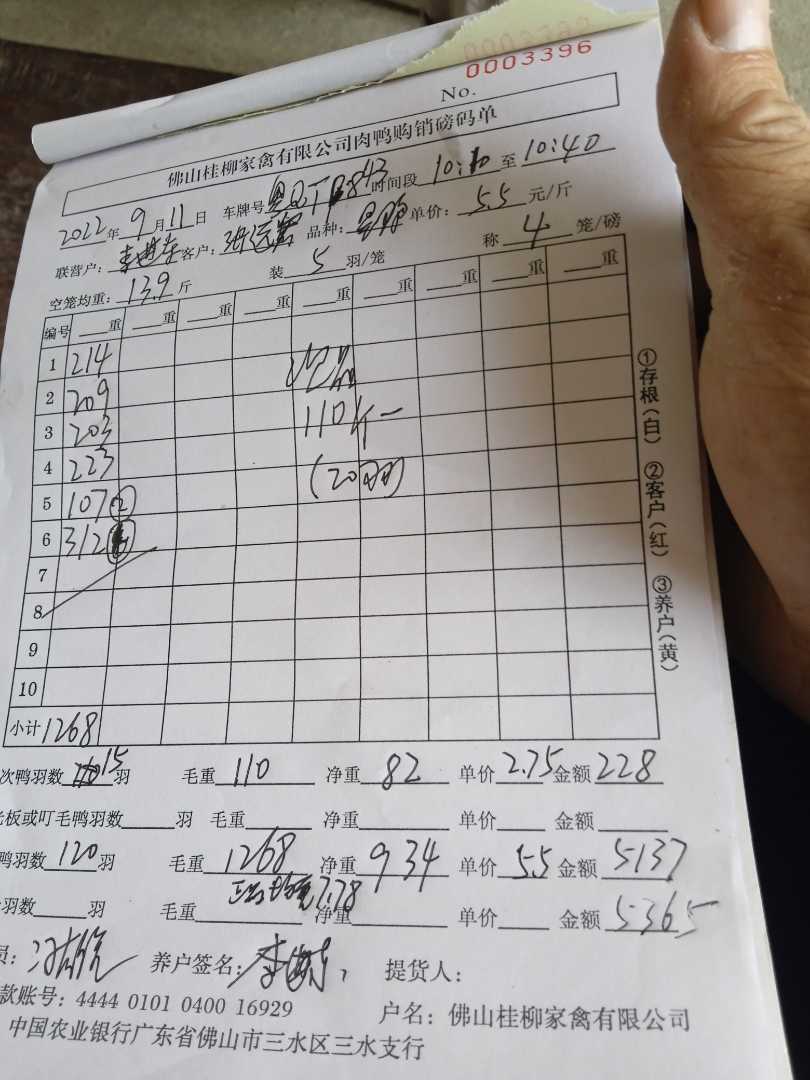 0003396
No.
佛山桂柳家禽有限公司肉鸭购销磅码单
2022年9月11日 车牌号 时间段 10:10 至 10:40
联营户: 客户: 品种: 单价: 5.5 元/斤
空笼均重: 13.9 斤 装 5 羽/笼 称 4 笼/磅
编号 重 重 重 重 重 重 重 重 重
1 214
2 209
3 203 110斤
4 223 (20羽)
5 107 ②
6 312
7
8
9
10
小计 1268
①存根(白) ②客户(红) ③养户(黄)
次鸭羽数 15 羽 毛重 110 净重 82 单价 2.75 金额 228
板或叮毛鸭羽数 羽 毛重 净重 单价 金额
鸭羽数 120 羽 毛重 1268 净重 934 单价 5.5 金额 5137
7.78
羽数 羽 毛重 净重 单价 金额 5365
员: 养户签名: 提货人:
款账号: 4444 0101 0400 16929 户名: 佛山桂柳家禽有限公司
中国农业银行广东省佛山市三水区三水支行